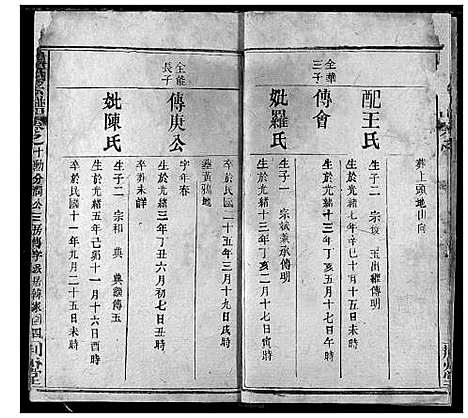 葬上頭地山向
配王氏
生於光緒七年辛巳十月十五日未時
生子二 宗 玉出繼傳明
全華三子
傳會
生於光緒十三年丁亥五月十七日
妣羅氏
生於光緒十三年丁亥二月初八日亥時
生子一 宗斌兼承傳明
卒於民國二十五年三月十九日戌時
葬黃鴉地
全能長子
傳庚公
字年春
生於光緒三年丁丑六月初七日丑時
卒葬未詳
妣陳氏
生於光緒五年己卯十一月十六日酉時
生子二 宗和 典 典繼傳玉
卒於民國十一年九月二十五日未時